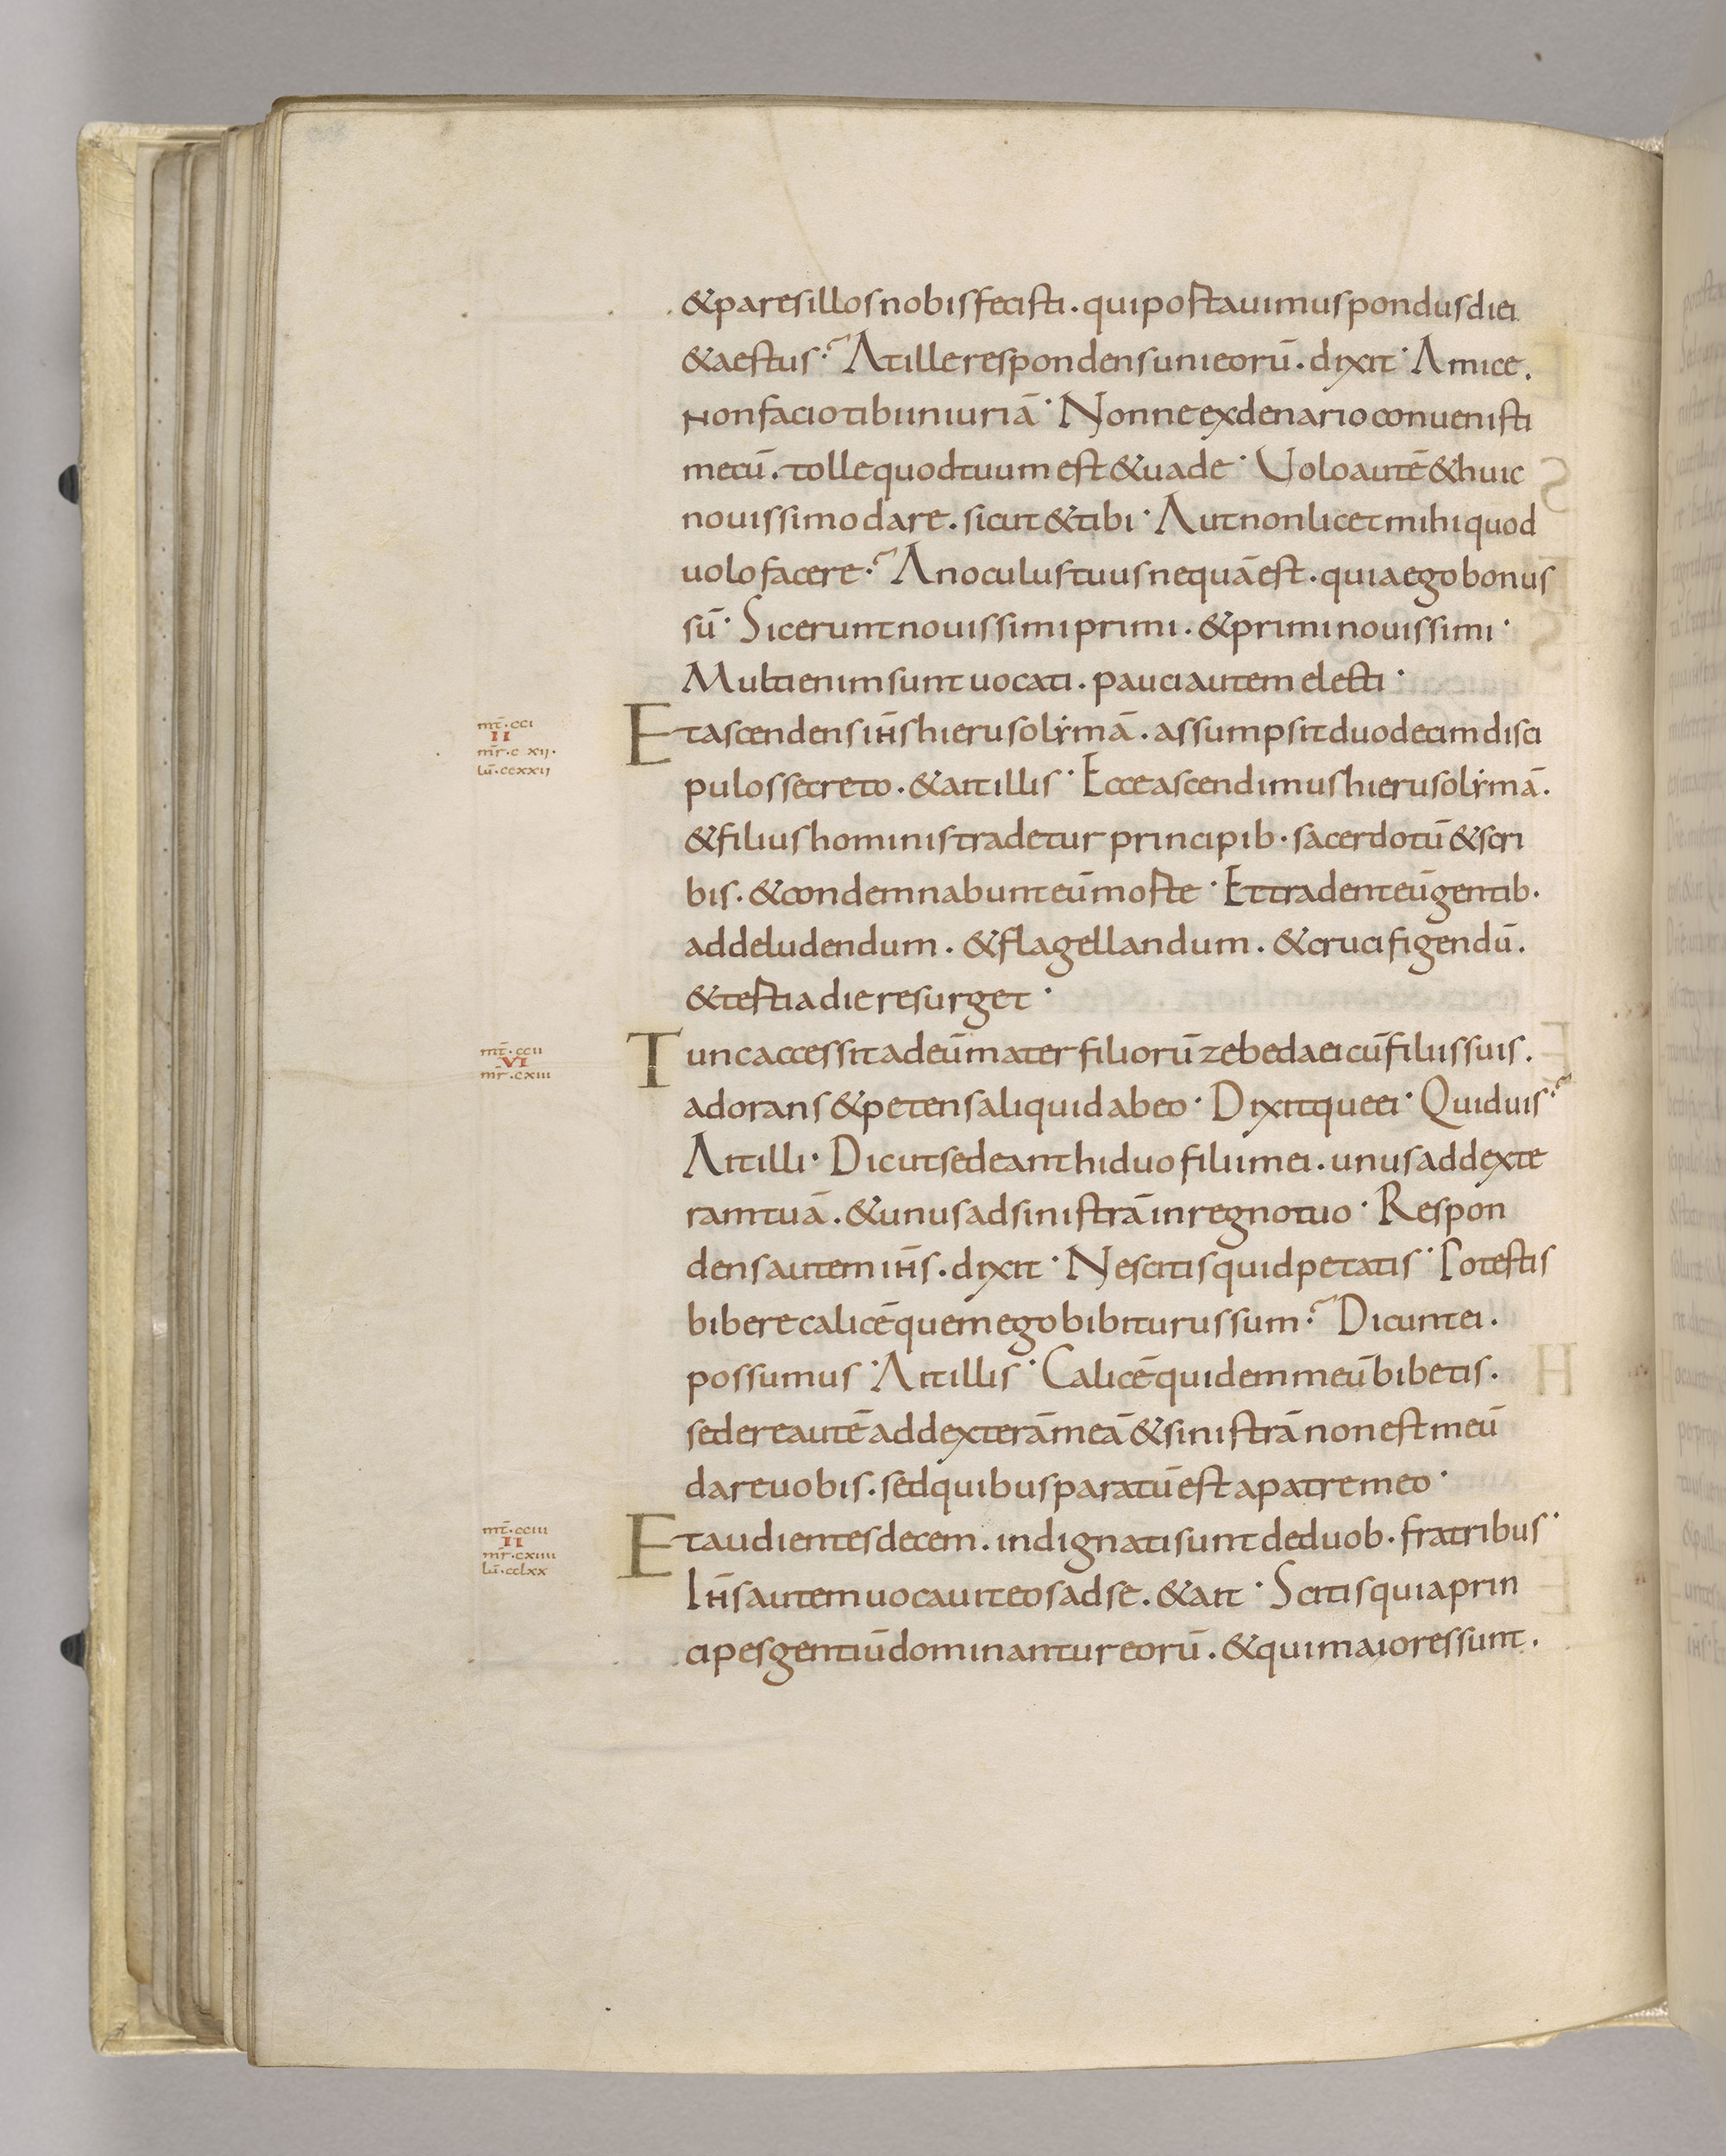 & pares illos nobis fecisti. qui portauimus pondus diei
& aestus? At ille respondens uni eorū. dixit· Amice.
non facio tibi iniuriā· Nonne ex denario conuenisti
mecū. tolle quod tuum est & uade· Uolo autē & huic
nouissimo dare. sicut & tibi· Aut non licet mihi quod
uolo facere? An oculus tuus nequā est. quia ego bonus
sū· Sic erunt nouissimi primi. & primi nouissimi·
Multi enim sunt uocati. pauci autem electi·
mt̄. cci
II
mr̄. c xii.
lū. ccxxii
Et ascendens ih̄s hierusolẏmā. assumpsit duodecim disci
pulos secreto. & ait illis· Ecce ascendimus hierusolẏmā.
& filius hominis tradetur principib· sacerdotū & scri
bis. & condemnabunt eū morte· Et tradent eū gentib·
ad deludendum. & flagellandum. & crucifigendū.
& tertia die resurget·
mt̄. ccii
VI
mr̄. cxiii
Tunc accessit ad eū mater filiorū zebedaei cū filiis suis.
adorans & petens aliquid ab eo· Dixitque ei· Quid uis?
Ait illi· Dic ut sedeant hi duo filii mei. unus ad dexte
ram tuā. & unus ad sinistrā in regno tuo· Respon
dens autem ih̄s. dixit· Nescitis quid petatis· Potestis
bibere calicē quem ego bibiturus sum? Dicunt ei.
possumus· Ait illis· Calicē quidem meū bibetis.
sedere autē ad dexterā meā & sinistrā non est meū
dare uobis. sed quibus paratū est a patre meo·
mt̄. cciii
II
mr̄. cxiiii
lū. cclxx
Et audientes decem. indignati sunt de duob· fratribus·
Ih̄s autem uocauit eos ad se. & ait· Scitis quia prin
cipes gentiū dominantur eorū. & qui maiores sunt.